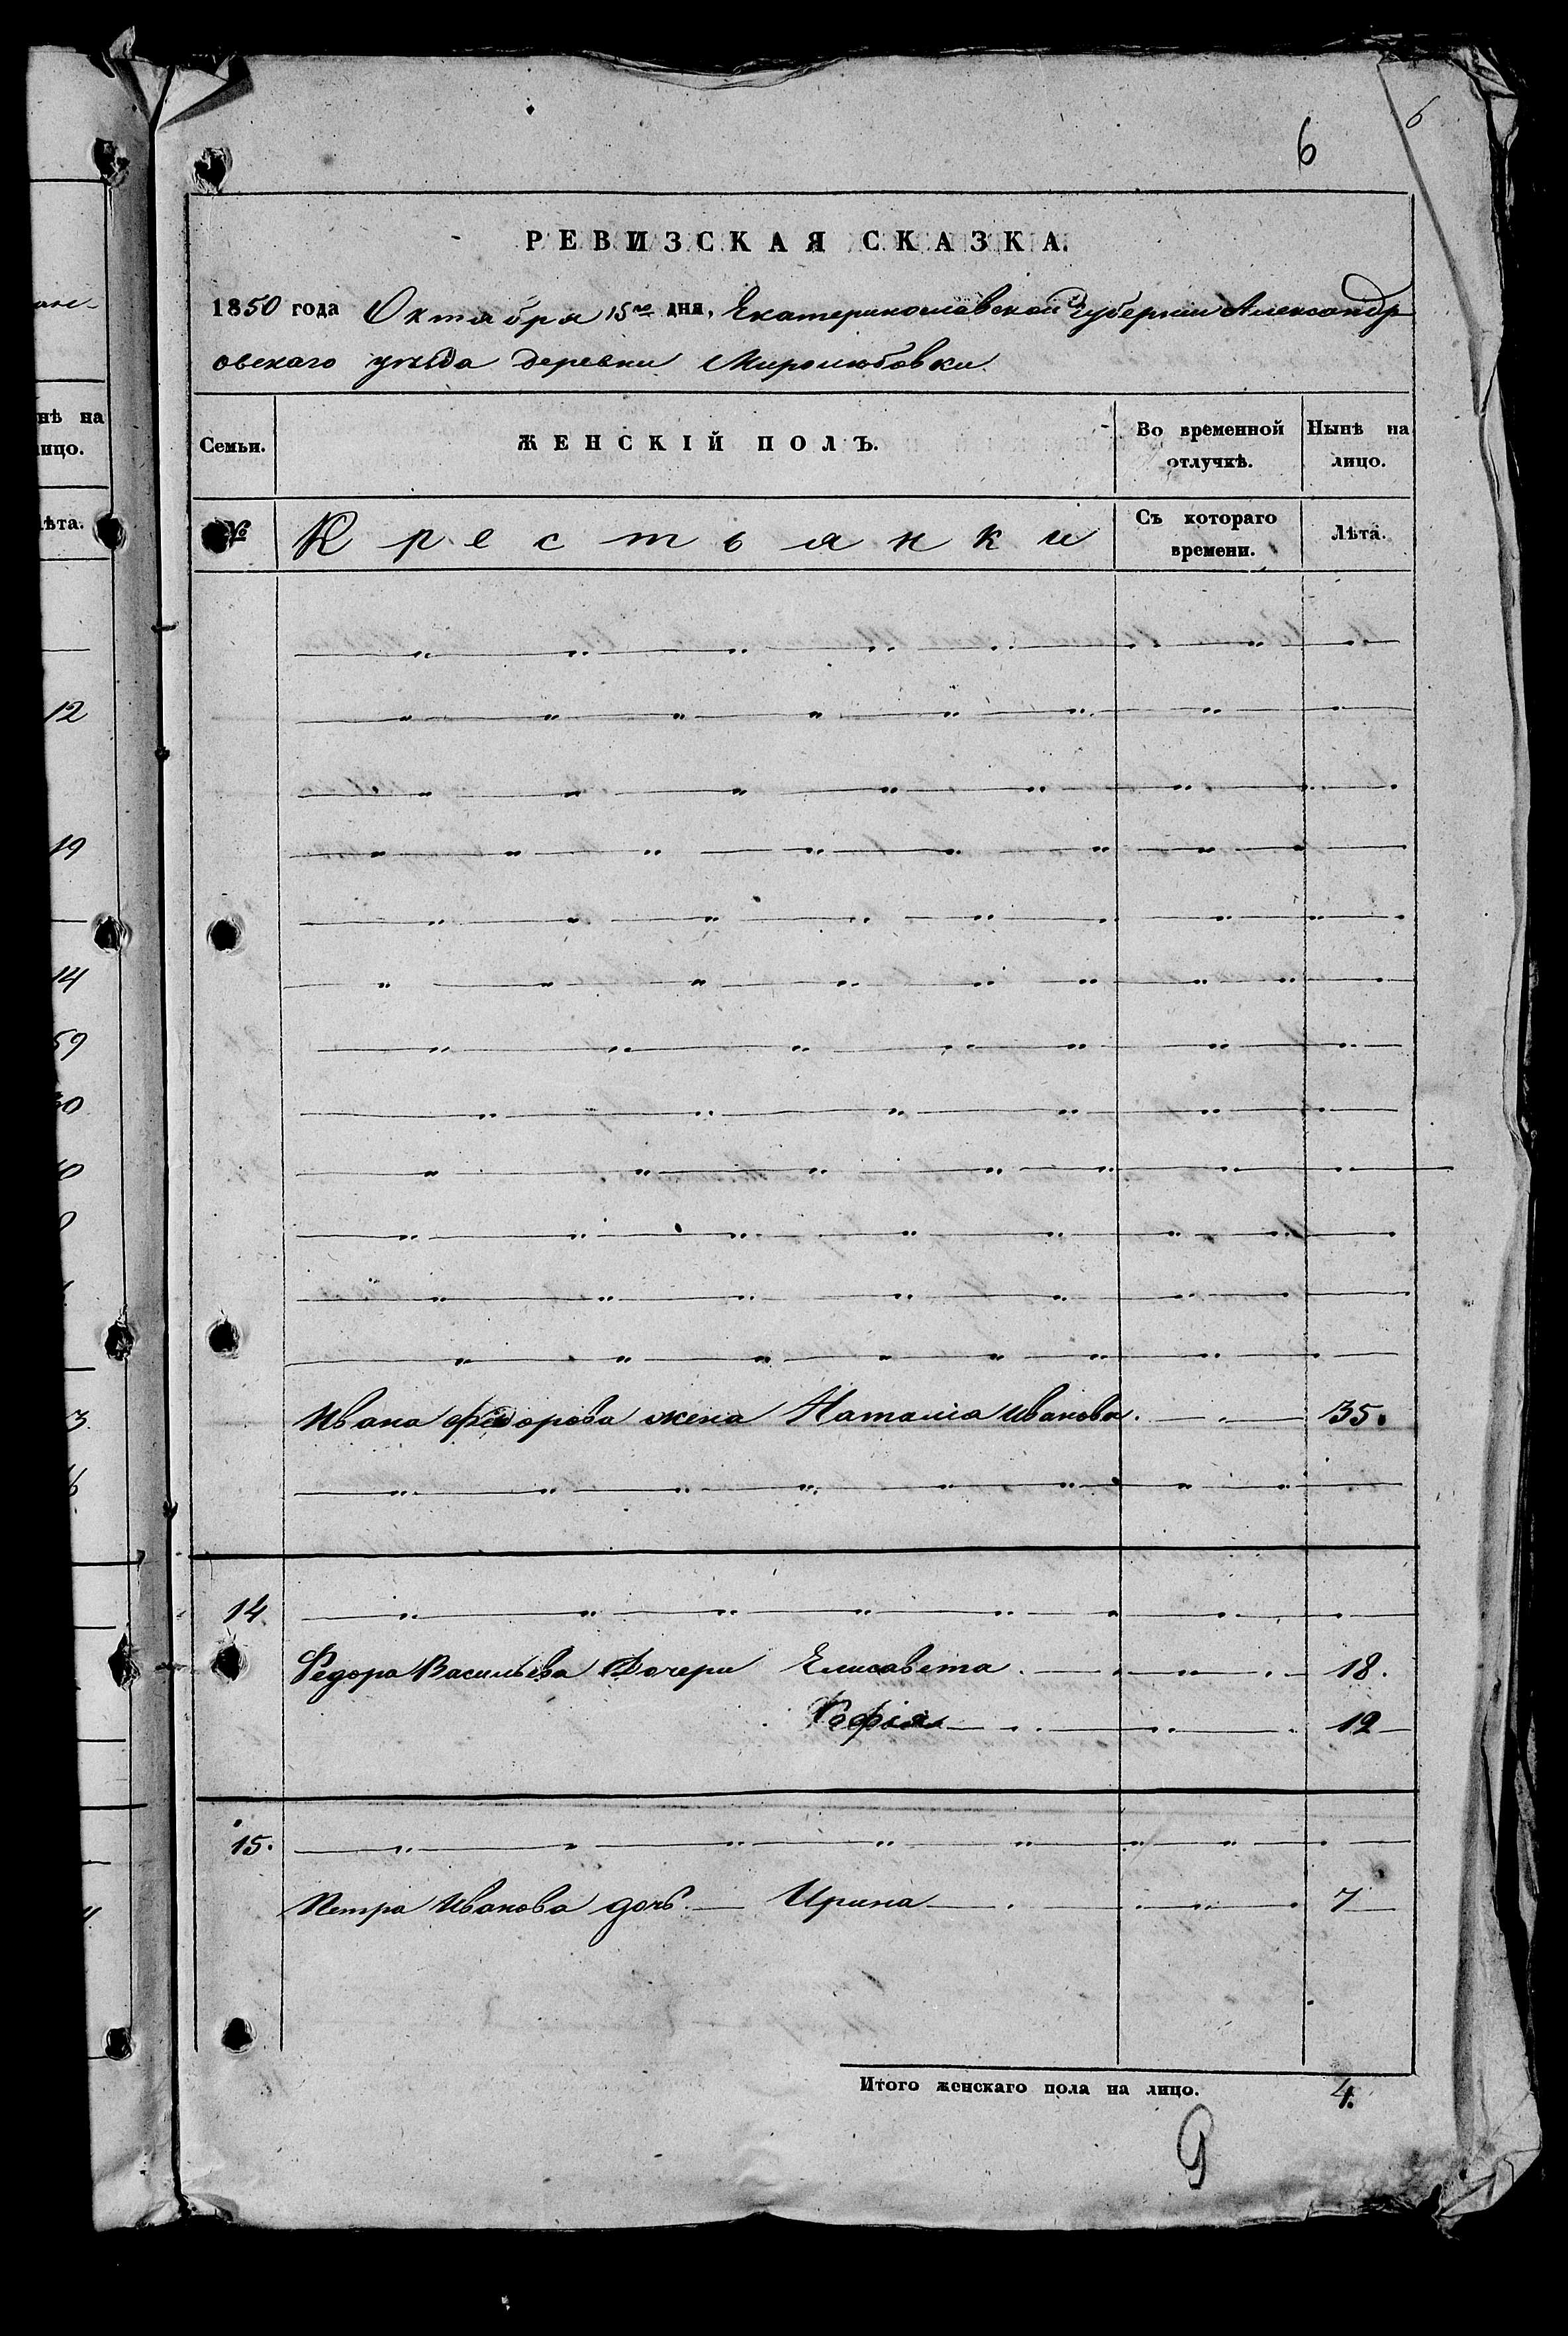 6
6
РЕВИЗСКАЯ СКАЗКА.
1850 года Октября 15го дня, Екатеринославской Губернии Александр
овскаго уѣзда деревни Миролюбовки.
нѣ на
ицо.
Семьи.
ЖЕНСКІЙ ПОЛЪ.
Во временной
отлучкѣ.
Нынѣ на
лицо.
ѣта.
№
Крестьянки
Съ котораго
времени.
Лѣта.
12
19
14
59
Ивана Федорова жена Наталиа Иванова. 35.
3
14
Федора Васильева Дочери Елисавета. 18.
София 12
15.
Петра Иванова дочь Ирина 7
Итого женскаго пола на лицо. 4.